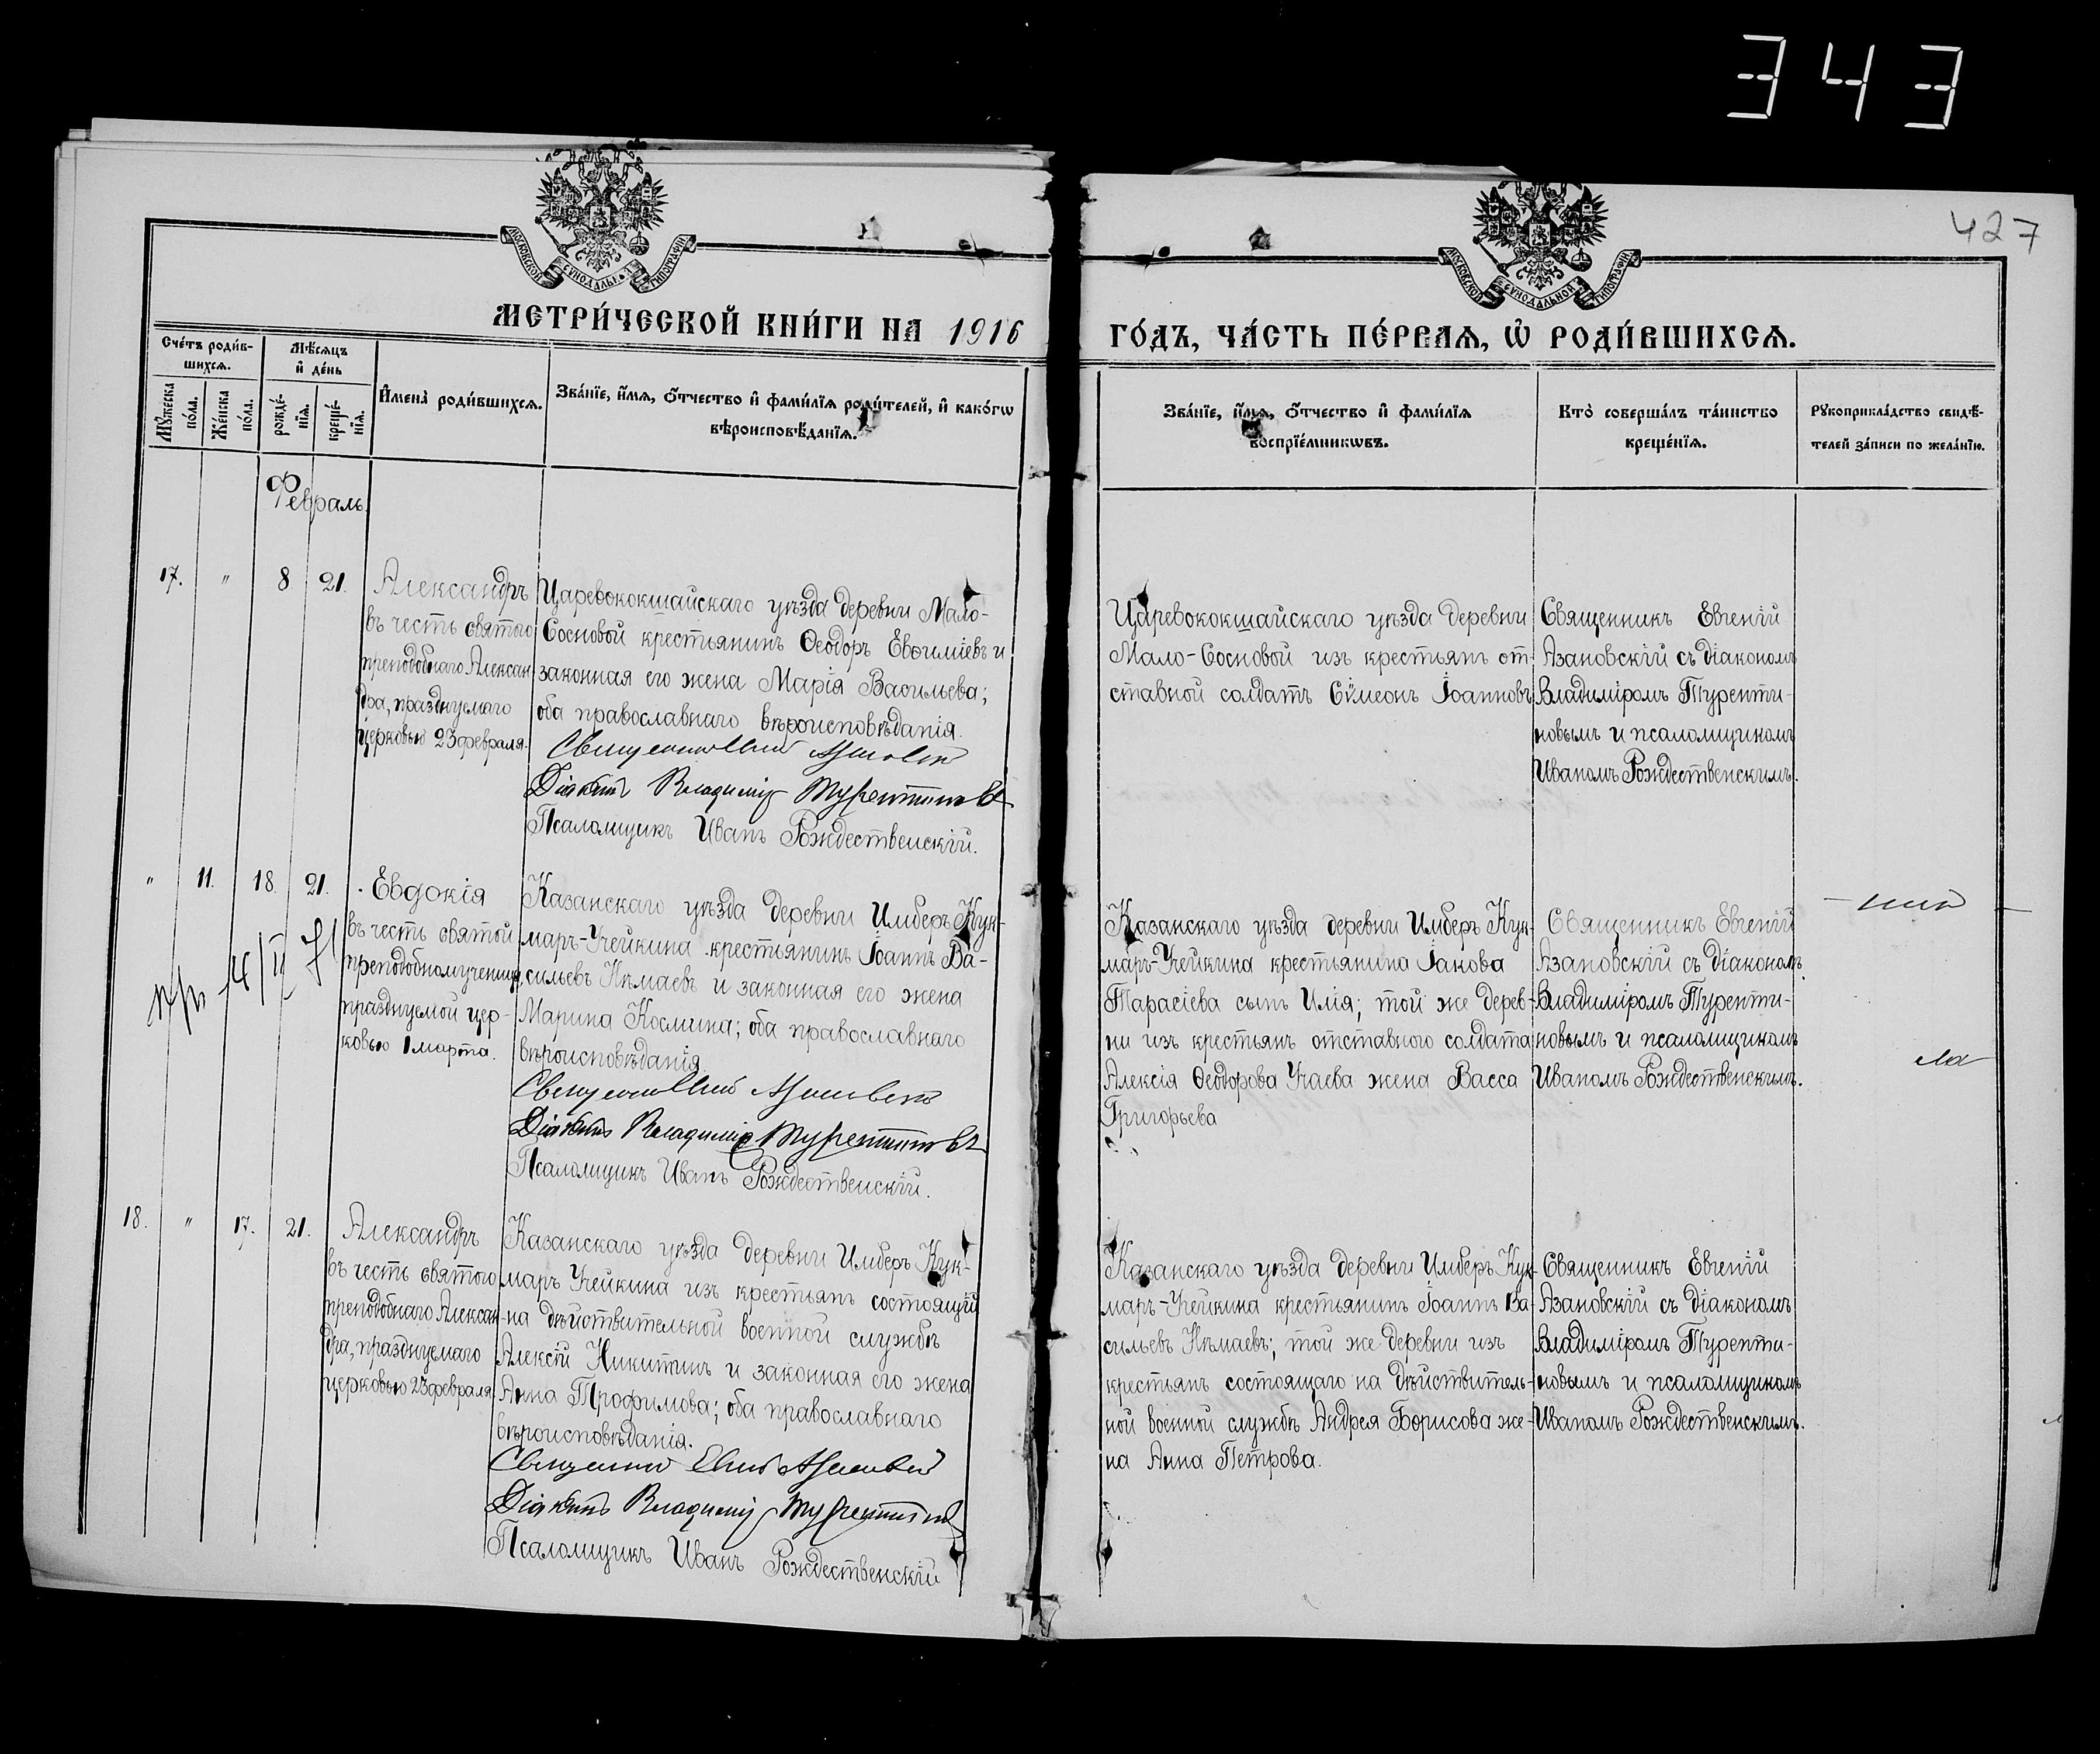 343
427
МОСКОВСКОЙ СѴНОДАЛЬНОЙ ТИПОГРАФІИ
МОСКОВСКОЙ СѴНОДАЛЬНОЙ ТИПОГРАФІИ
МЕТРИ́ЧЕСКОЙ КНИ́ГИ НА 1916 ГО́ДЪ, ЧА́СТЬ ПЕ́РВАЯ, Ѡ РОДИ́ВШИХСЯ.
Сче́тъ роди́в-
шихся.
Мꙋ́жеска по́ла.
Же́нска по́ла.
Мѣ́сяцъ
и де́нь
рожде́-
нїя.
креще́-
нїя.
Имена̀ роди́вшихся.
Зва́нїе, и́мя, ѻ́тчество и фами́лїя роди́телей, и како́гѡ
вѣроисповѣ́данїя.
Зва́нїе, и́мя, ѻ́тчество и фами́лїя
воспрїе́мникѡвъ.
Кто̀ соверша́лъ та́инство
креще́нїя.
Рꙋкоприкла́дство свидѣ́-
телей за́писи по жела́нїю.
Февраль.
17. " 8 21.
Александръ
въ честь святого
преподобнаго Алексан
дра, празднуемаго
церковью 23 февраля.
Царевококшайскаго уѣзда деревни Мало-
Сосновой крестьянинъ Ѳеодоръ Евѳиміевъ и
законная его жена Марія Васильева;
оба православнаго вѣроисповѣданія.
Діаконъ Владимір Турентиновъ
Псаломщикъ Иванъ Рождественскій.
Царевококшайскаго уѣзда деревни
Мало-Сосновой изъ крестьянъ от-
ставной солдатъ Сѵмеонъ Іоанновъ
Священникъ Евгеній
Азановскій съ діакономъ
Владиміромъ Туренти-
новымъ и псаломщикомъ
Иваномъ Рождественскимъ.
" 11. 18. 21.
Евдокія
въ честь святой
преподобномученицы,
празднуемой цер-
ковью 1 марта.
Казанскаго уѣзда деревни Имберъ Кук-
маръ-Учейкина крестьянинъ Іоаннъ Ва-
сильевъ Нѣмаевъ и законная его жена
Марина Космина; оба православнаго
вѣроисповѣданія
Діаконъ Владимір Турентиновъ
Псаломщикъ Иванъ Рождественскій.
Казанскаго уѣзда деревни Имберъ Кук-
маръ-Учейкина крестьянина Іакова
Тарасіева сынъ Илія; той же дерев-
ни изъ крестьянъ отставного солдата
Алексія Ѳеодорова Учаева жена Васса
Григорьева
Священникъ Евгеній
Азановскій съ діакономъ
Владиміромъ Туренти-
новымъ и псаломщикомъ
Иваномъ Рождественскимъ.
18. " 17. 21.
Александръ
въ честь святого
преподобнаго Алексан
дра, празднуемаго
церковью 23 февраля
Казанскаго уѣзда деревни Имберъ Кук-
маръ Учейкина изъ крестьянъ состоящій
на дѣйствительной военной службѣ
Алексій Никитинъ и законная его жена
Анна Трофимова; оба православнаго
вѣроисповѣданія.
Діаконъ Владимір Турентинов
Псаломщикъ Иванъ Рождественскій
Казанскаго уѣзда деревни Имберъ Кук-
маръ-Учейкина крестьянинъ Іоаннъ Ва-
сильевъ Нѣмаевъ; той же деревни изъ
крестьянъ состоящаго на дѣйствитель-
ной военной службѣ Андрея Борисова же-
на Анна Петрова.
Священникъ Евгеній
Азановскій съ діакономъ
Владиміромъ Туренти-
новымъ и псаломщикомъ
Иваномъ Рождественскимъ.